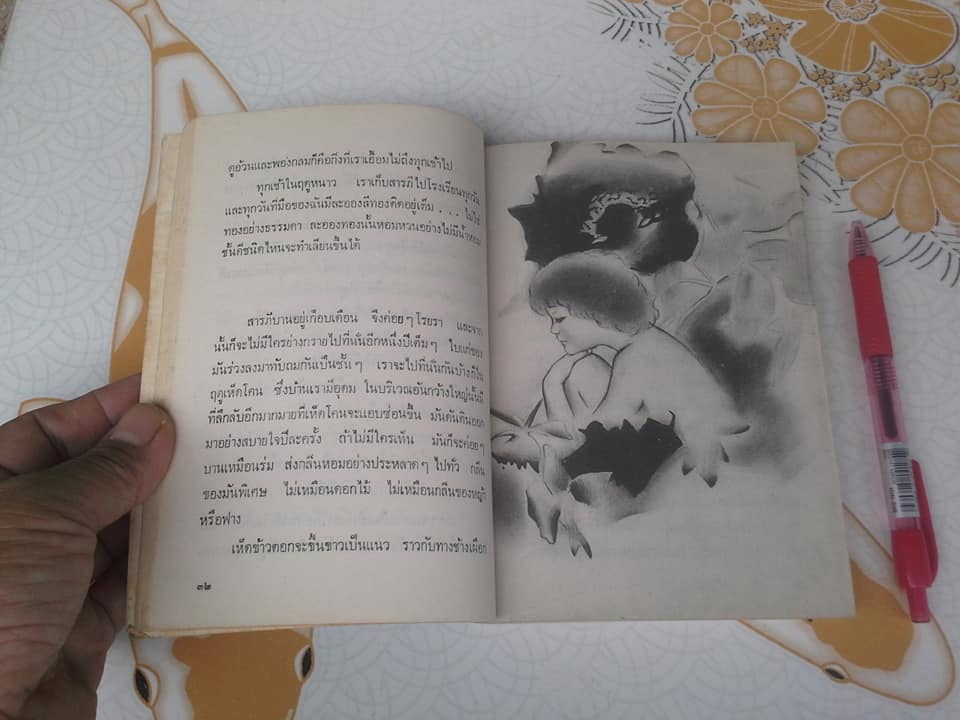 ดูอ้วนและพองกลมก็คือกิ่งที่เราเอื้อมไม่ถึงทุกเช้าไป
ทุกเช้าในฤดูหนาว เราเก็บสารภีไปโรงเรียนทุกวัน
และทุกวันที่มือของฉันมีละอองสีทองติดอยู่เต็ม . . . ไม่ใช่
ทองอย่างธรรมดา ละอองทองนั้นหอมหวนอย่างไม่มีน้ำหอม
ชั้นดีชนิดไหนจะทำเลียนขึ้นได้
สารภีบานอยู่เกือบเดือน จึงค่อยๆโรยรา และจาก
นั้นก็จะไม่มีใครย่างกรายไปที่นั่นอีกหนึ่งปีเต็มๆ ใบแก่ของ
มันร่วงลงมาทับถมกันเป็นชั้นๆ เราจะไปที่นั่นกันบ้างก็ใน
ฤดูเห็ดโคน ซึ่งบ้านเรามีอุดม ในบริเวณอันกว้างใหญ่นั้นมี
ที่ลึกลับอีกมากมายที่เห็ดโคนจะแอบซ่อนขึ้น มันดันดินออก
มาอย่างสบายใจปีละครั้ง ถ้าไม่มีใครเห็น มันก็จะค่อยๆ
บานเหมือนร่ม ส่งกลิ่นหอมอย่างประหลาดๆไปทั่ว กลิ่น
ของมันพิเศษ ไม่เหมือนดอกไม้ ไม่เหมือนกลิ่นของหญ้า
หรือฟาง
เห็ดข้าวตอกจะขึ้นขาวเป็นแนว ราวกับทางช้างเผือก
๓๒